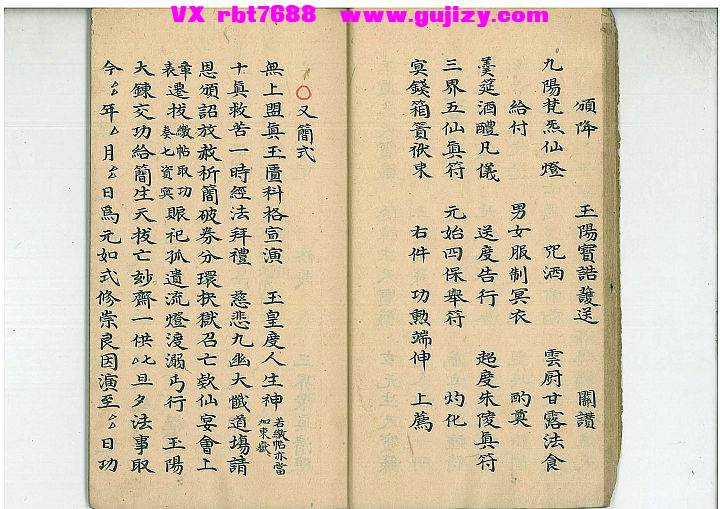 VX rbt7688 www.gujizy.com
頒降 玉陽寶誥發送 關讚
九陽梵炁仙燈 咒酒 雲厨甘露法食
給付 男女服制冥衣 酌奠
羹筵酒醴凡儀 送度告行 起度朱陵真符
三界五仙真符 元始四保舉符 灼化
冥錢箱簀 右件功勲端伸 上薦
○又簡式
無上盟真玉匱科格宣演 玉皇度人生神 若繳帖亦當加東嶽
十真救苦一時經法拜禮 慈悲九幽大懺道塲請
恩頒詔放赦祈簡破券分環抉獄召亡欵仙宴會上
章遷拔 繳帖取功 賑祀孤遺流燈渡溺丐行 玉陽
大鍊交功給簡生天拔亡玅齋一供 旦夕法事取
今 年 月 日為元如式修崇良因演至 日功